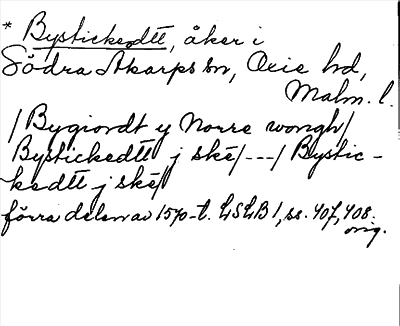 * Bystickedtt, åker i
Södra Åkarps sn, Oxie hd,
Malm. l.
/Bygiordt y Norre wongh/
Bystickedtt j ske/---/Bystic-
kedtt j ske/
förra delen av 1570-t. LSLB 1, ss. 407, 408.
orig.